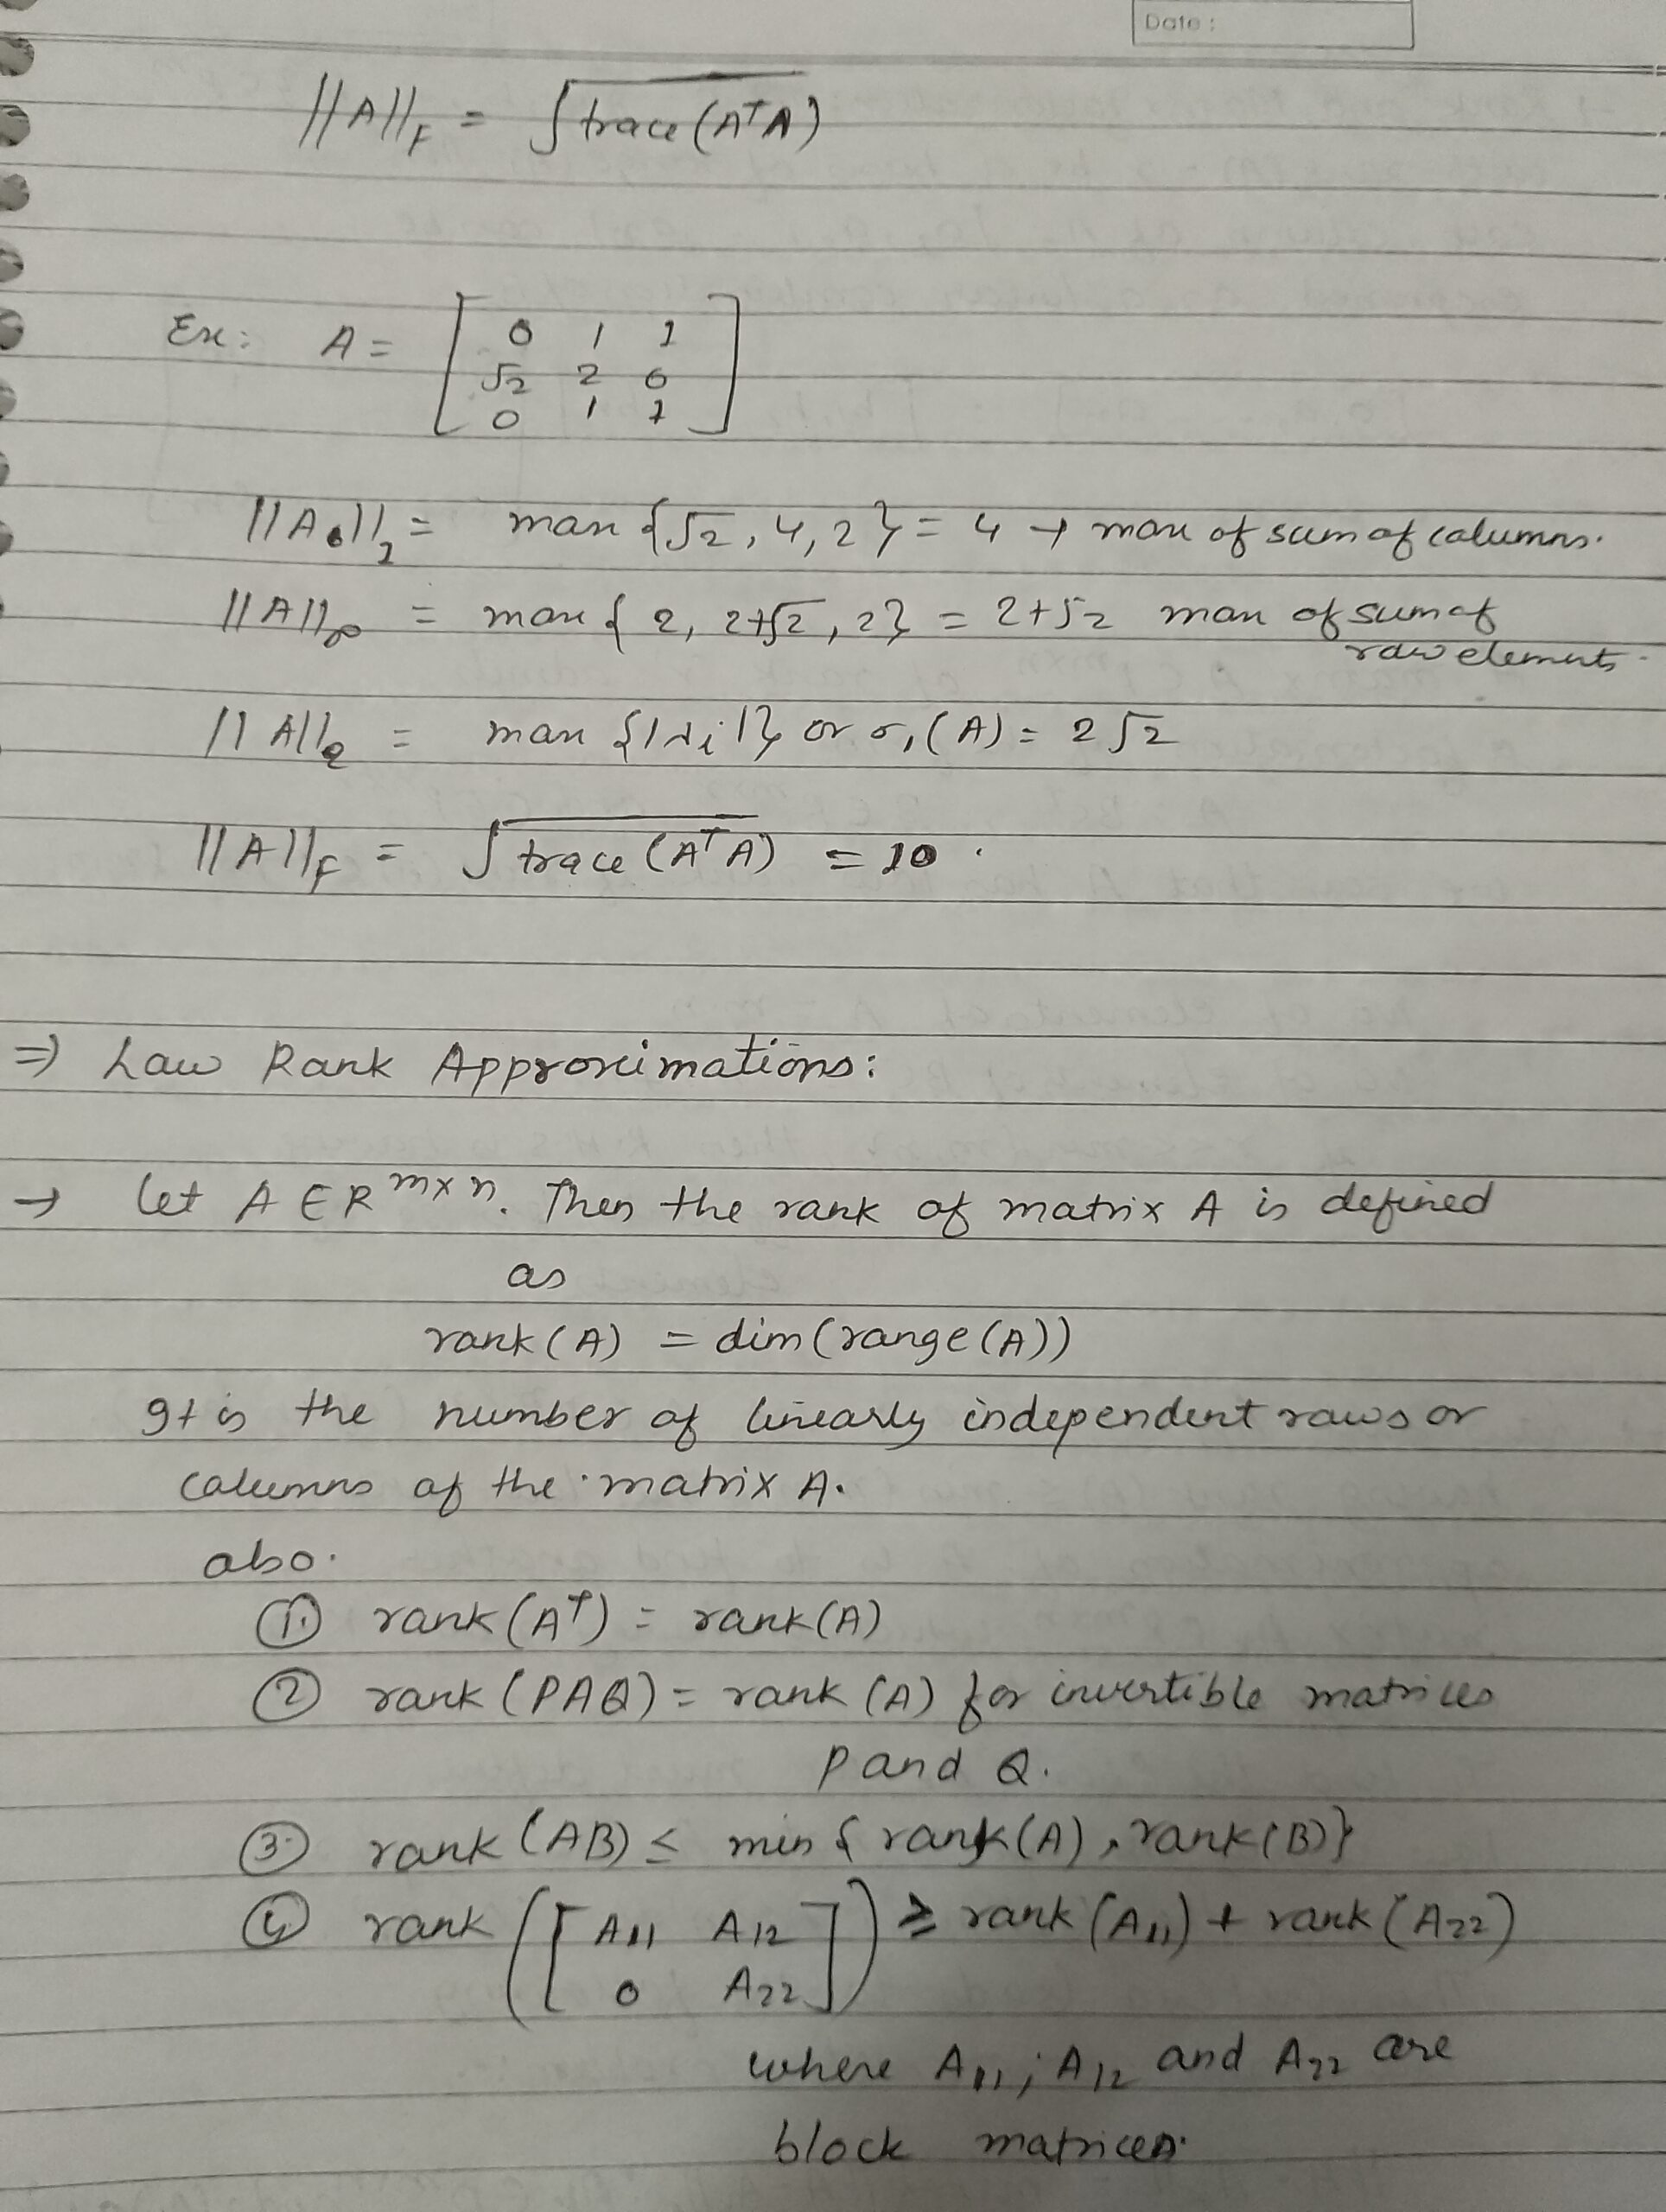 Date :
||A||_F = √trace(AᵀA)
Ex: A = [ 0 1 1
√2 2 0
0 1 1 ]
||A||₁ = max {√2, 4, 2} = 4 → max of sum of columns.
||A||∞ = max { 2, 2+√2, 2} = 2+√2 max of sum of
row elements.
||A||₂ = max {|λi|} or σ₁(A) = 2√2
||A||_F = √trace(AᵀA) = 10.
⇒ Low Rank Approximations:
→ Let A ∈ R^{m×n}. Then the rank of matrix A is defined
as
rank(A) = dim(range(A))
It is the number of linearly independent rows or
columns of the matrix A.
also.
① rank(Aᵀ) = rank(A)
② rank(PAQ) = rank(A) for invertible matrices
P and Q.
③ rank(AB) ≤ min{rank(A), rank(B)}
④ rank([ A₁₁ A₁₂
0 A₂₂ ]) ≥ rank(A₁₁) + rank(A₂₂)
where A₁₁, A₁₂ and A₂₂ are
block matrices.